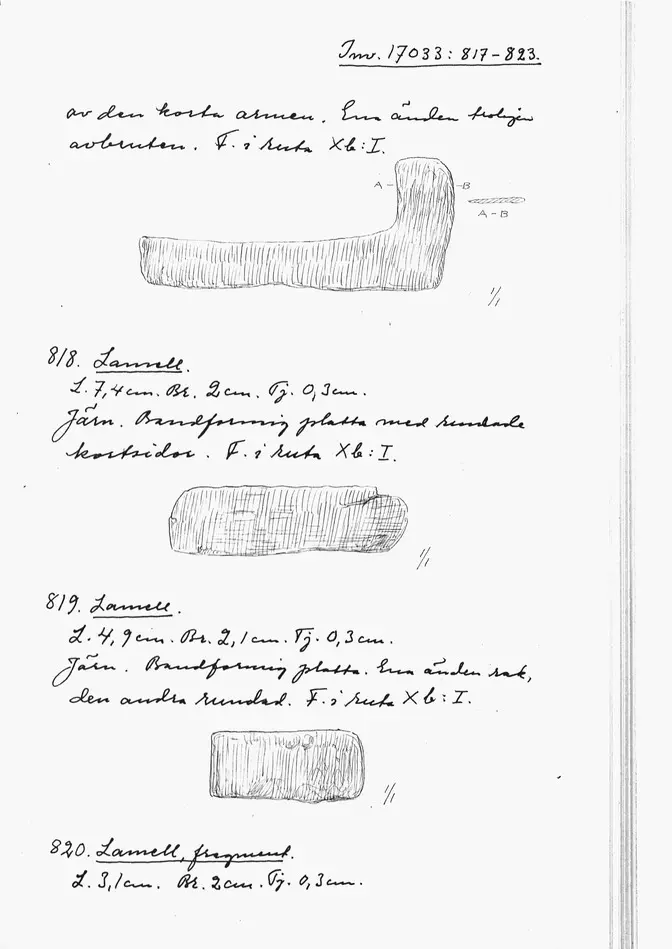 Inv. 17033: 817-823.
av den korta armen. Ena änden troligen
avbruten. F. i ruta Xb: I.
A - - B
A - B
1/1
818. Lamell.
L. 7,4 cm. Br. 2 cm. Tj. 0,3 cm.
Järn. Bandformig platta med rundade
kortsidor. F. i ruta Xb: I.
1/1
819. Lamell.
L. 4,9 cm. Br. 2,1 cm. Tj. 0,3 cm.
Järn. Bandformig platta. Ena änden rak,
den andra rundad. F. i ruta Xb: I.
1/1
820. Lamell, fragment.
L. 3,1 cm. Br. 2 cm. Tj. 0,3 cm.